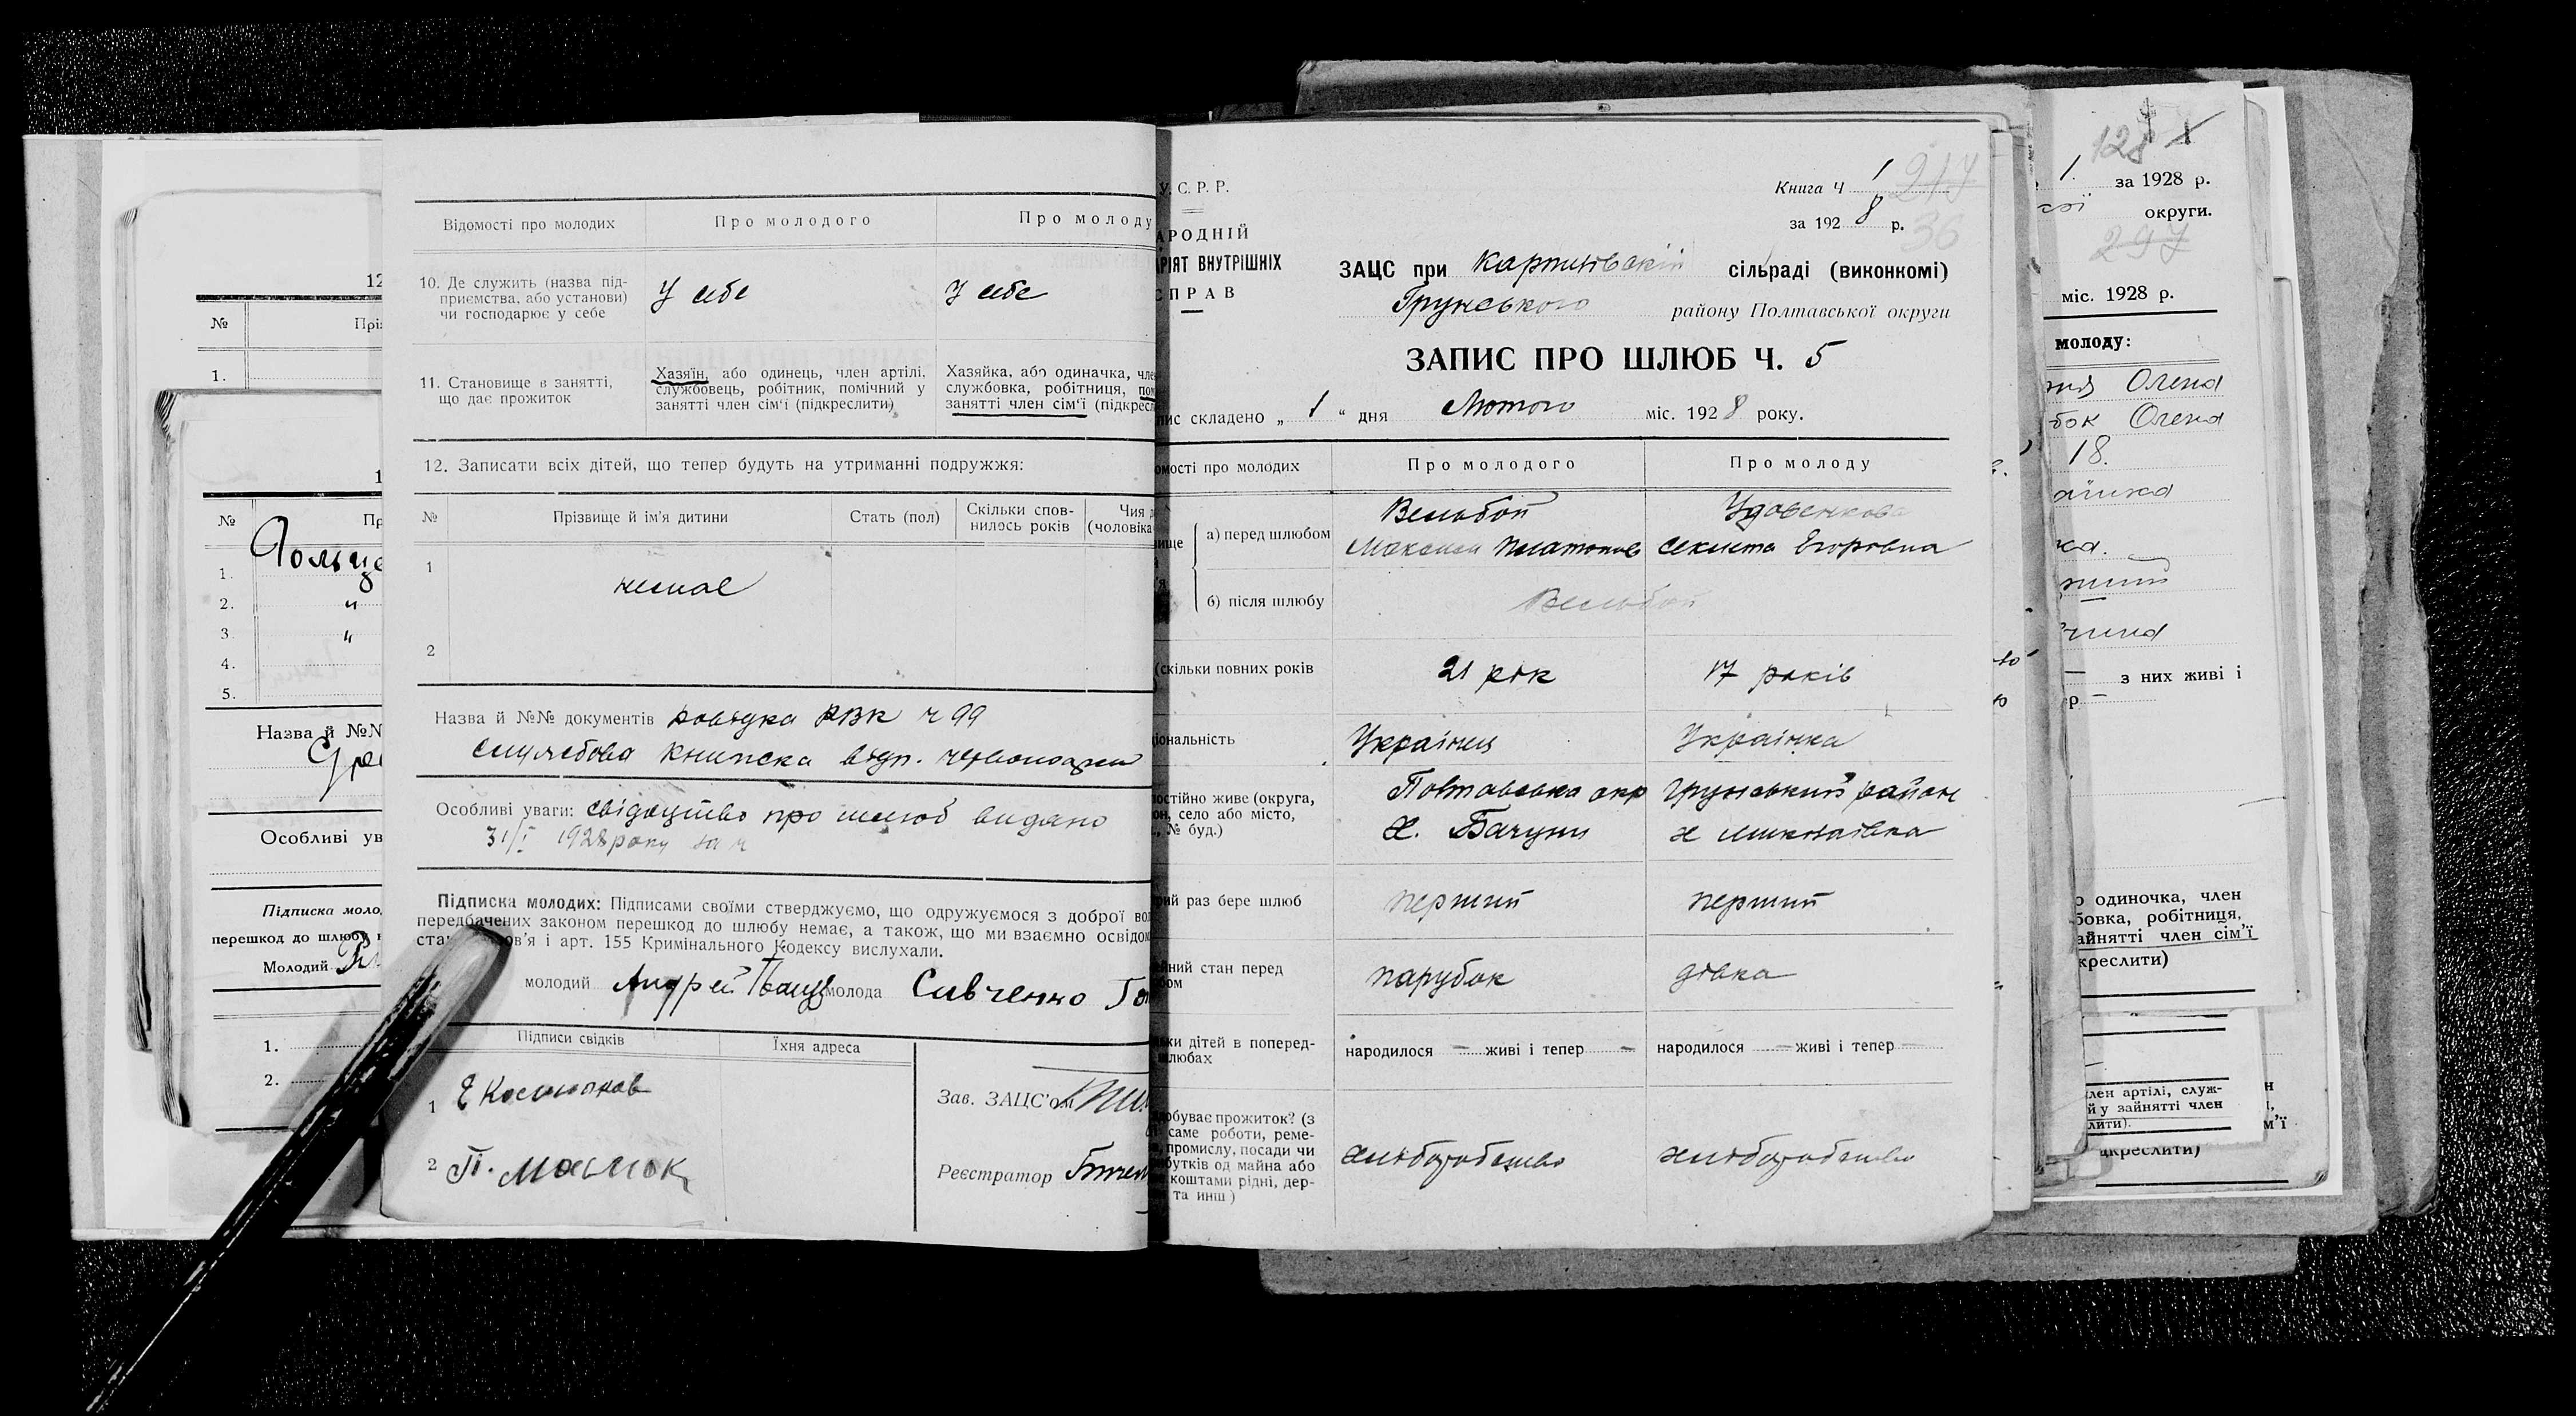 12
№
Прі
1.
1
№
Пр
1.
2. "
3 "
4.
5.
Назва й №№
Особливі ув
Підписка моло
перешкод до шлюбу н
Молодий
1.
2.
Відомості про молодих
Про молодого
Про молоду
10. Де служить (назва під-
приємства, або установи)
чи господарює у себе
У себе
У себе
11. Становище в занятті,
що дає прожиток
Хазяїн, або одинець, член артілі,
службовець, робітник, помічний у
занятті член сім'ї (підкреслити)
Хазяйка, або одиначка, чле
службовка, робітниця, пом
занятті член сім'ї (підкресл
12. Записати всіх дітей, що тепер будуть на утриманні подружжя:
№
Прізвище й ім'я дитини
Стать (пол)
Скільки спов-
нилось років
Чия д
(чоловіка
1
немає
2
Назва й №№ документів довідка РВК ч 99
службова книжка відп. червоноарм
Особливі уваги: свідоцтво про шлюб видано
31/I 1928 року за ч
Підписка молодих: Підписами своїми стверджуємо, що одружуємося з доброї вол
передбачених законом перешкод до шлюбу немає, а також, що ми взаємно освідом
ста ов'я і арт. 155 Кримінального Кодексу вислухали.
молодий Андрей молода Савченко
Підписи свідків
Їхня адреса
1
2 П.
Зав. ЗАЦС'ом
Реєстратор
У. С. Р. Р.
АРОДНІЙ
АРІЯТ ВНУТРІШНІХ
СПРАВ
Книга Ч 1 217
за 1928 р. 36
ЗАЦС при Карпилівській сільраді (виконкомі)
Грунського району Полтавської округи
ЗАПИС ПРО ШЛЮБ Ч. 5
пис складено „ 1 " дня Лютого міс. 1928 року.
омості про молодих
Про молодого
Про молоду
вище
а) перед шлюбом
Вельбой
Максим Платонов
Удовенкова
Секлета Егоровна
б) після шлюбу
Вельбой
(скільки повних років
21 рік
17 років
ціональність
Українец
Українка
постійно живе (округа,
он, село або місто,
, № буд.)
Полтавська окр Грунський район
Х. Бачуни
х Миколаївка
рий раз бере шлюб
перший
перший
йний стан перед
бом
парубок
дівка
ьки дітей в поперед-
шлюбах
народилося — живі і тепер —
народилося — живі і тепер —
добуває прожиток? (з
саме роботи, реме-
промислу, посади чи
бутків од майна або
коштами рідні, дер-
та инш)
хліборобство
хліборобство
128
1. за 1928 р.
округи.
297
міс. 1928 р.
молоду:
Олена
бок Олена
18.
ка.
— з них живі і
р —
о одиночка, член
бовка, робітниця,
айнятті член сім'ї
креслити)
лен артілі, служ-
й у зайнятті член
лити).
м'ї
дкреслити)